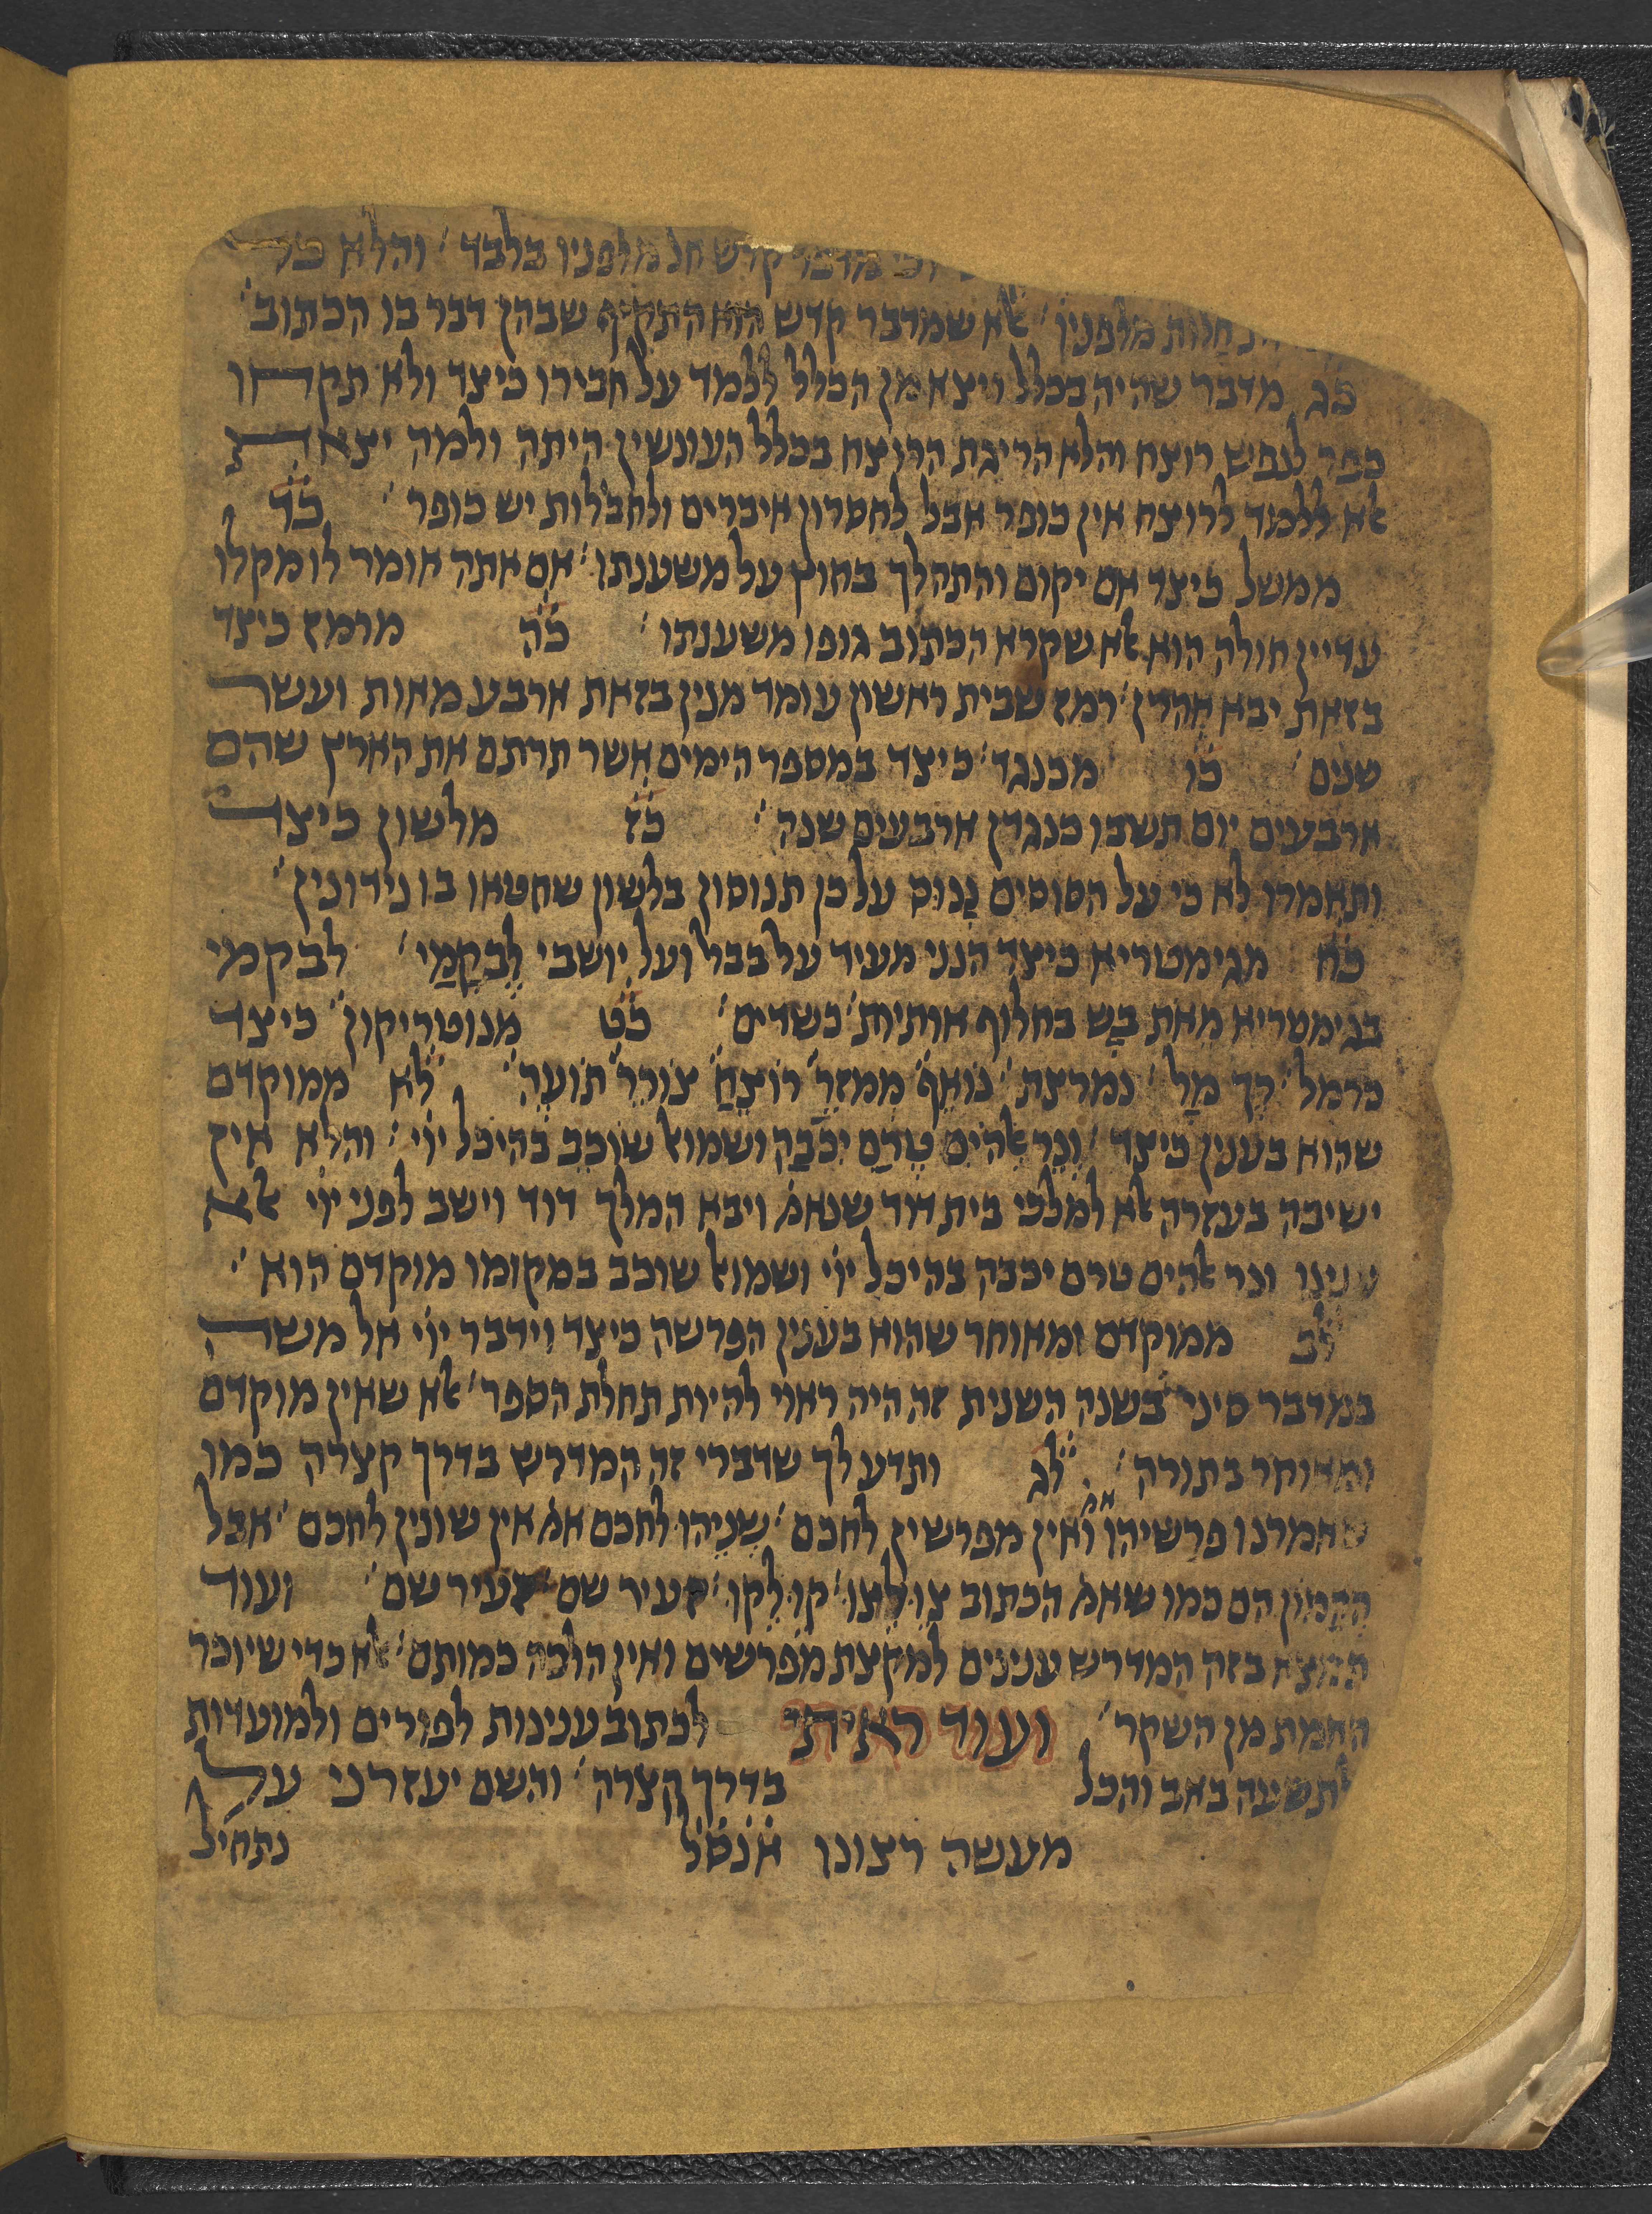 מדבר קדש חל מלפניו בלבד׳ והלא כל
חלות מלפנין׳ אלא שמדבר קדש הוא התקיף שבהן דבר בו הכתוב׳
כג מדבר שהיה בכלל ויצא מן הכלל ללמד על חבירו כיצד ולא תקחו
כפר לנפש רוצח והלא הריגת הרוצח בכלל העונשין היתה ולמה יצאת
אלא ללמד לרוצח אין כופר אבל לחסרון איברים ולחבלות יש כופר׳ כד
ממשל כיצד אם יקום והתהלך בחוץ על משענתו׳ אם אתה אומר לו מקלו
עדיין חולה הוא אלא שקרא הכתוב גופו משענתו׳ כה מרמז כיצד
בזאת יבא אהרן׳ רמז שבית ראשון עומד מנין בזאת ארבע מאות ועשר
שנים׳ כו מכנגד׳ כיצד במספר הימים אשר תרתם את הארץ שהם
ארבעים יום תשכון כנגדן ארבעים שנה׳ כז מלשון כיצד
ותאמרו לא כי על הסוסים נָנוּס על כן תנוסון בלשון שחטאו בו נידונין׳
כח מגימטריא כיצד הנני מעיד על בבל ועל יושבי לֵבקָמַי׳ לבקמי
בגימטריא מאת בַש בחלוף אותיות׳ כשדים׳ כט מנוטריקון׳ כיצד
כרמל׳ רַך מַל׳ נמרצת׳ נואף׳ ממזר׳ רוצח׳ צורר׳ תועה׳ לא ממוקדם
שהוא בענין כיצד׳ ונר אלהים טרם יכבה ושמואל שוכב בהיכל יוי׳ והלא אין
ישיבה בעזרה אלא למלכי בית דוד שנאמ׳ ויבא המלך דוד וישב לפני יוי אלא
ונר אלהים טרם יכבה בהיכל יוי ושמואל שוכב במקומו מוקדם הוא׳
לב ממוקדם ומאוחר שהוא בענין הפרשה כיצד וידבר יוי אל משה
במדבר סיני בשנה השנית זה היה ראוי להיות תחלת הספר׳ אלא שאין מוקדם
ומאוחר בתורה׳ לג ותדע לך שדברי זה המדרש בדרך קצרה כמו
שאמרנו פרשיהו ואין מפרשין לחכם׳ שניהו לחכם אם אין שונין לחכם׳ אבל
הם כמו שאמ׳ הכתוב צו לצו׳ קו לקו׳ זעיר שם זעיר שם׳ ועוד
תמצא בזה המדרש ענינים למקצת מפרשים ואין הלכה כמותם׳ אלא כדי שיוכר
האמת מן השקר׳ ועוד ראיתי לכתוב ענינות לפורים ולמועדות
לתשעה באב והכל בדרך קצרה׳ והשם יעזרני על
מעשה רצונו אנסל נתחיל